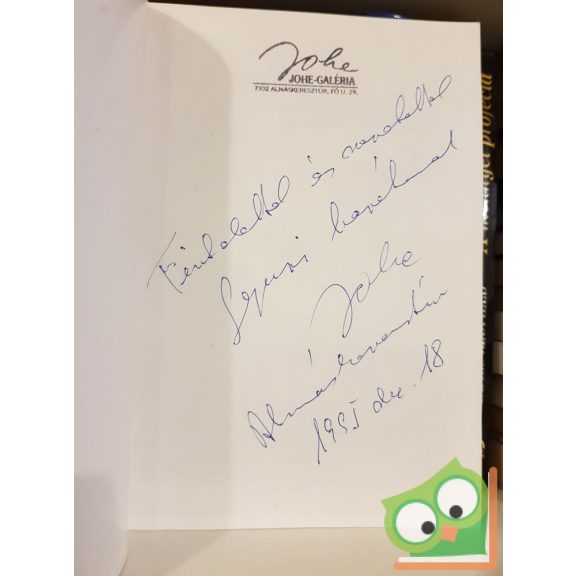 Johe
JOHE-GALÉRIA
7932 ALMÁSKERESZTÚR, FŐ U. 29.
Tisztelettel és szeretettel
barátomnak
Johe
Almáskeresztúr
1995 dec. 18